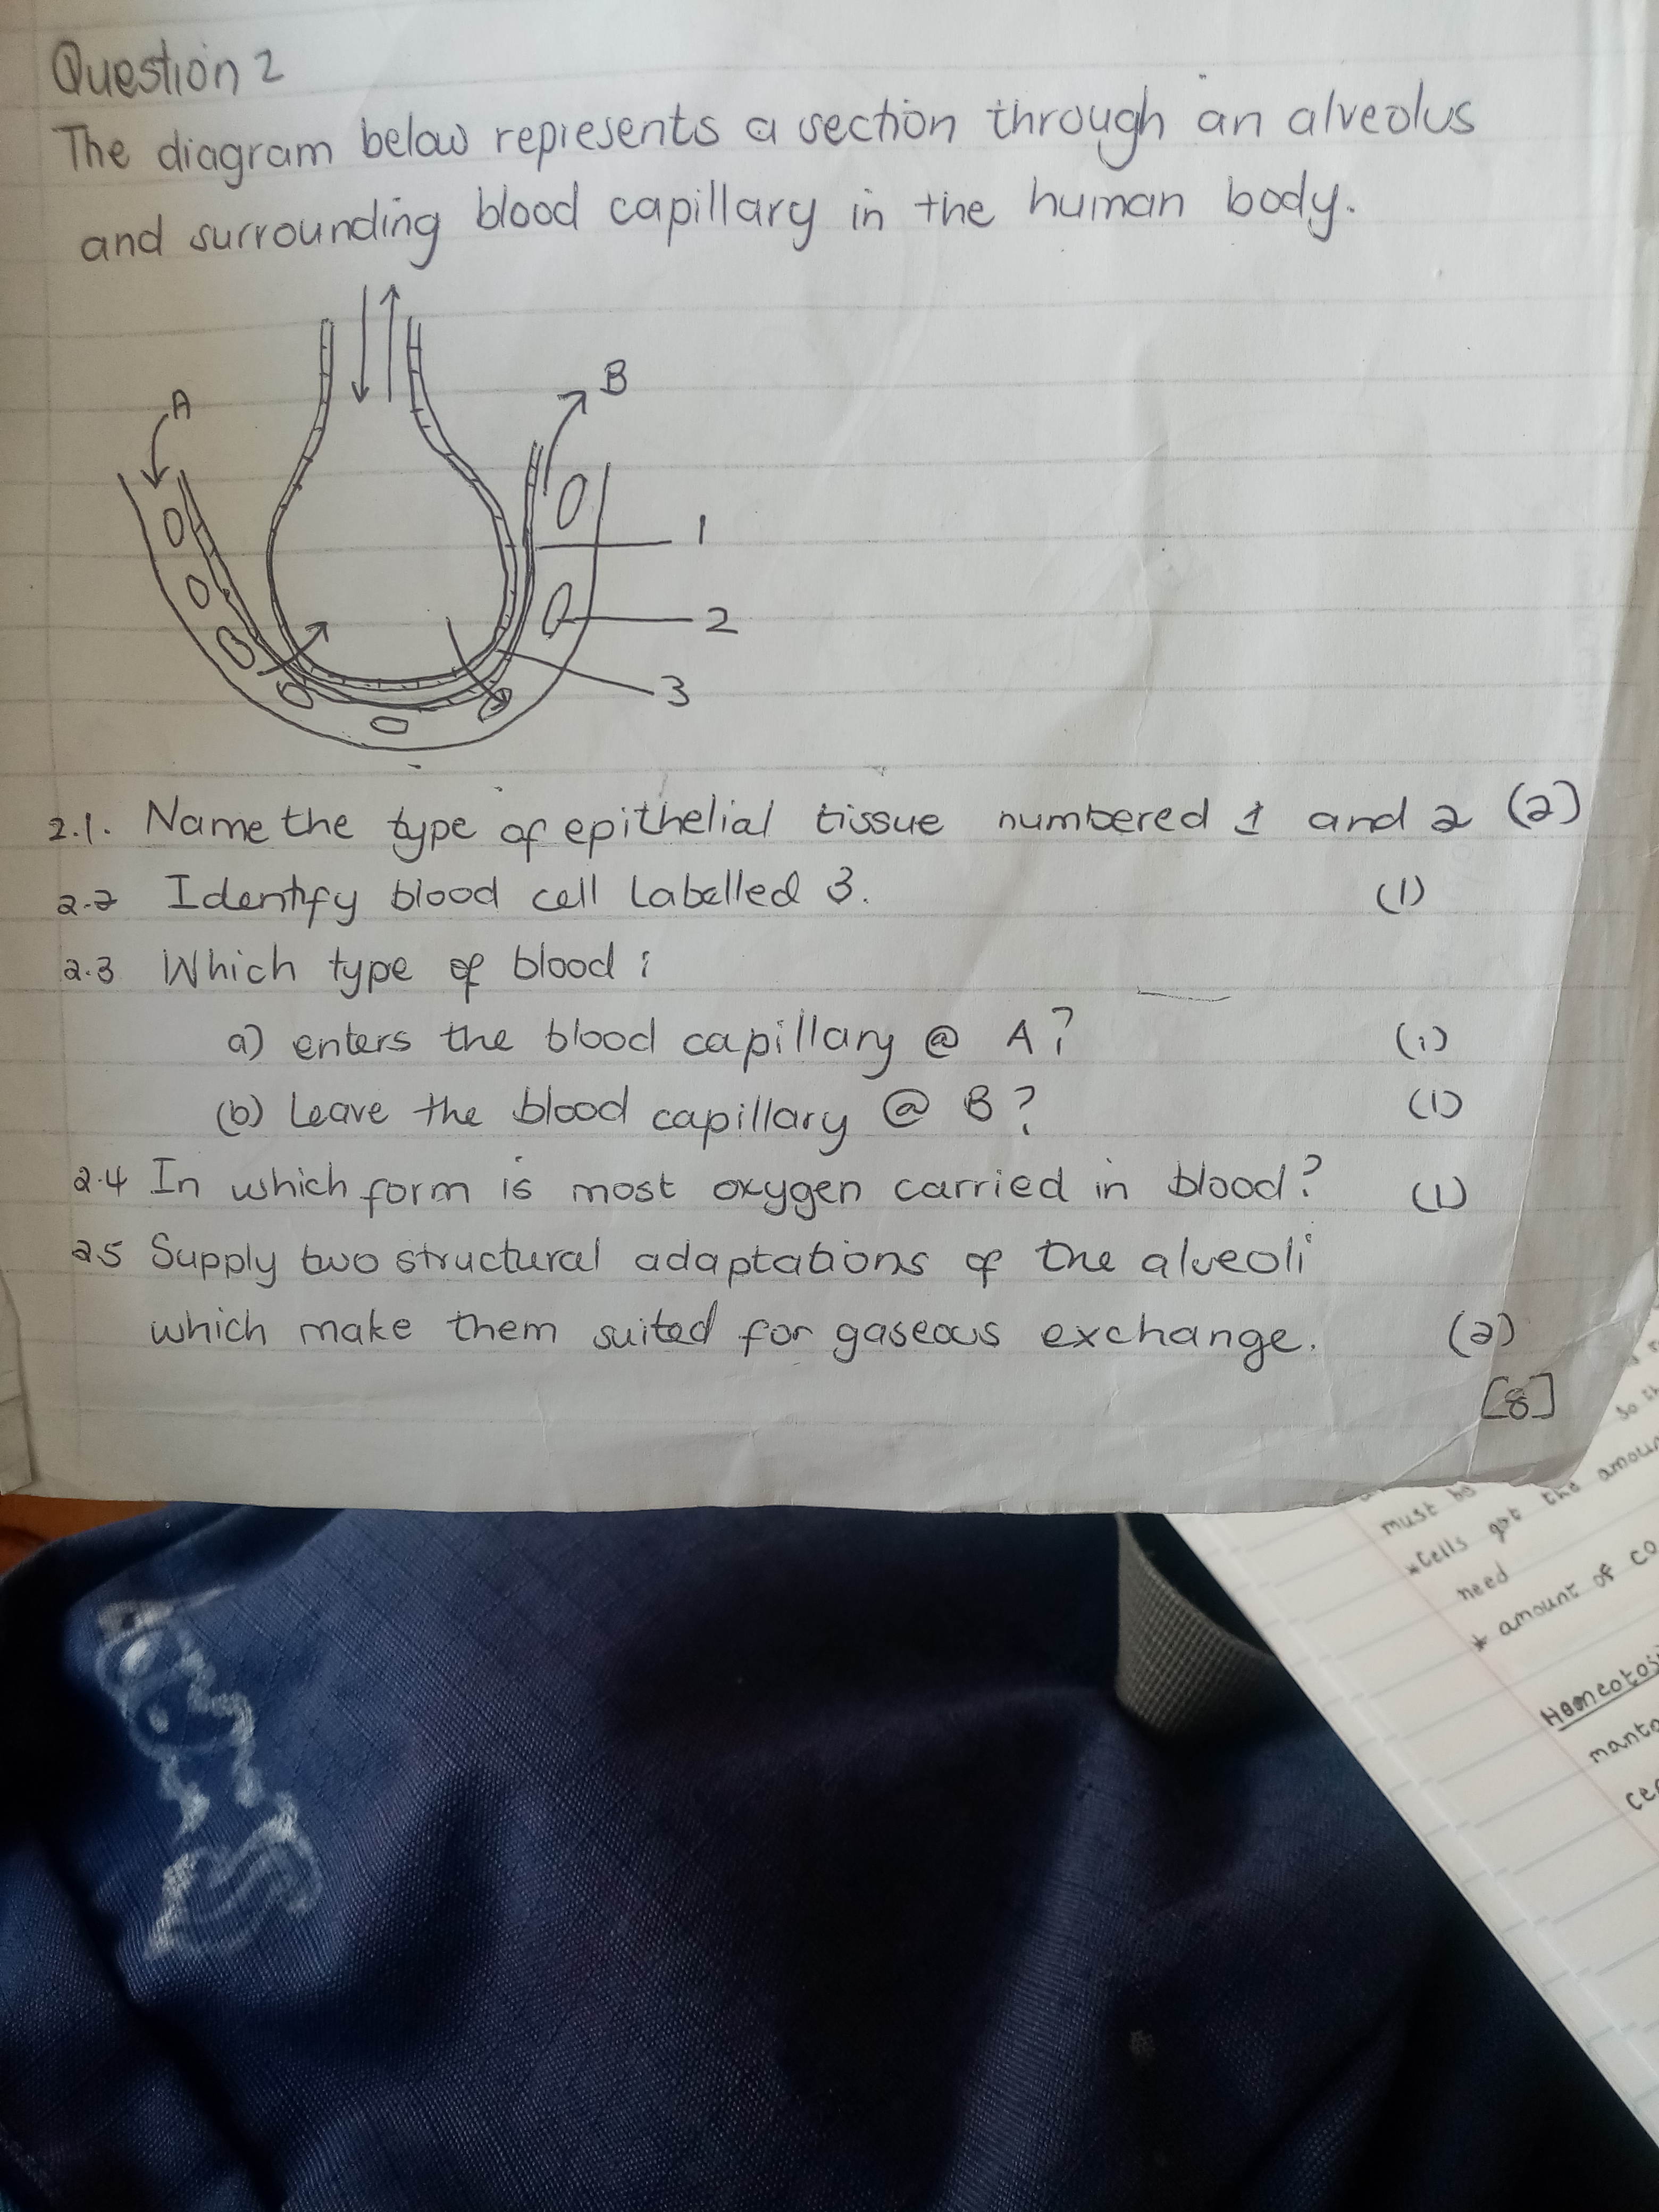 Question 2
The diagram below represents a section through an alveolus
and surrounding blood capillary in the human body.
A
B
1
2
3
2.1. Name the type of epithelial tissue numbered 1 and 2 (2)
2.2 Identify blood cell labelled 3. (1)
2.3 Which type of blood :
a) enters the blood capillary @ A? (1)
(b) Leave the blood capillary @ B? (1)
2.4 In which form is most oxygen carried in blood? (1)
2.5 Supply two structural adaptations of the alveoli
which make them suited for gaseous exchange. (2)
[8]
so th
amou
must be
*Cells get the
need
* amount of CO
Homeotosi
manta
cer